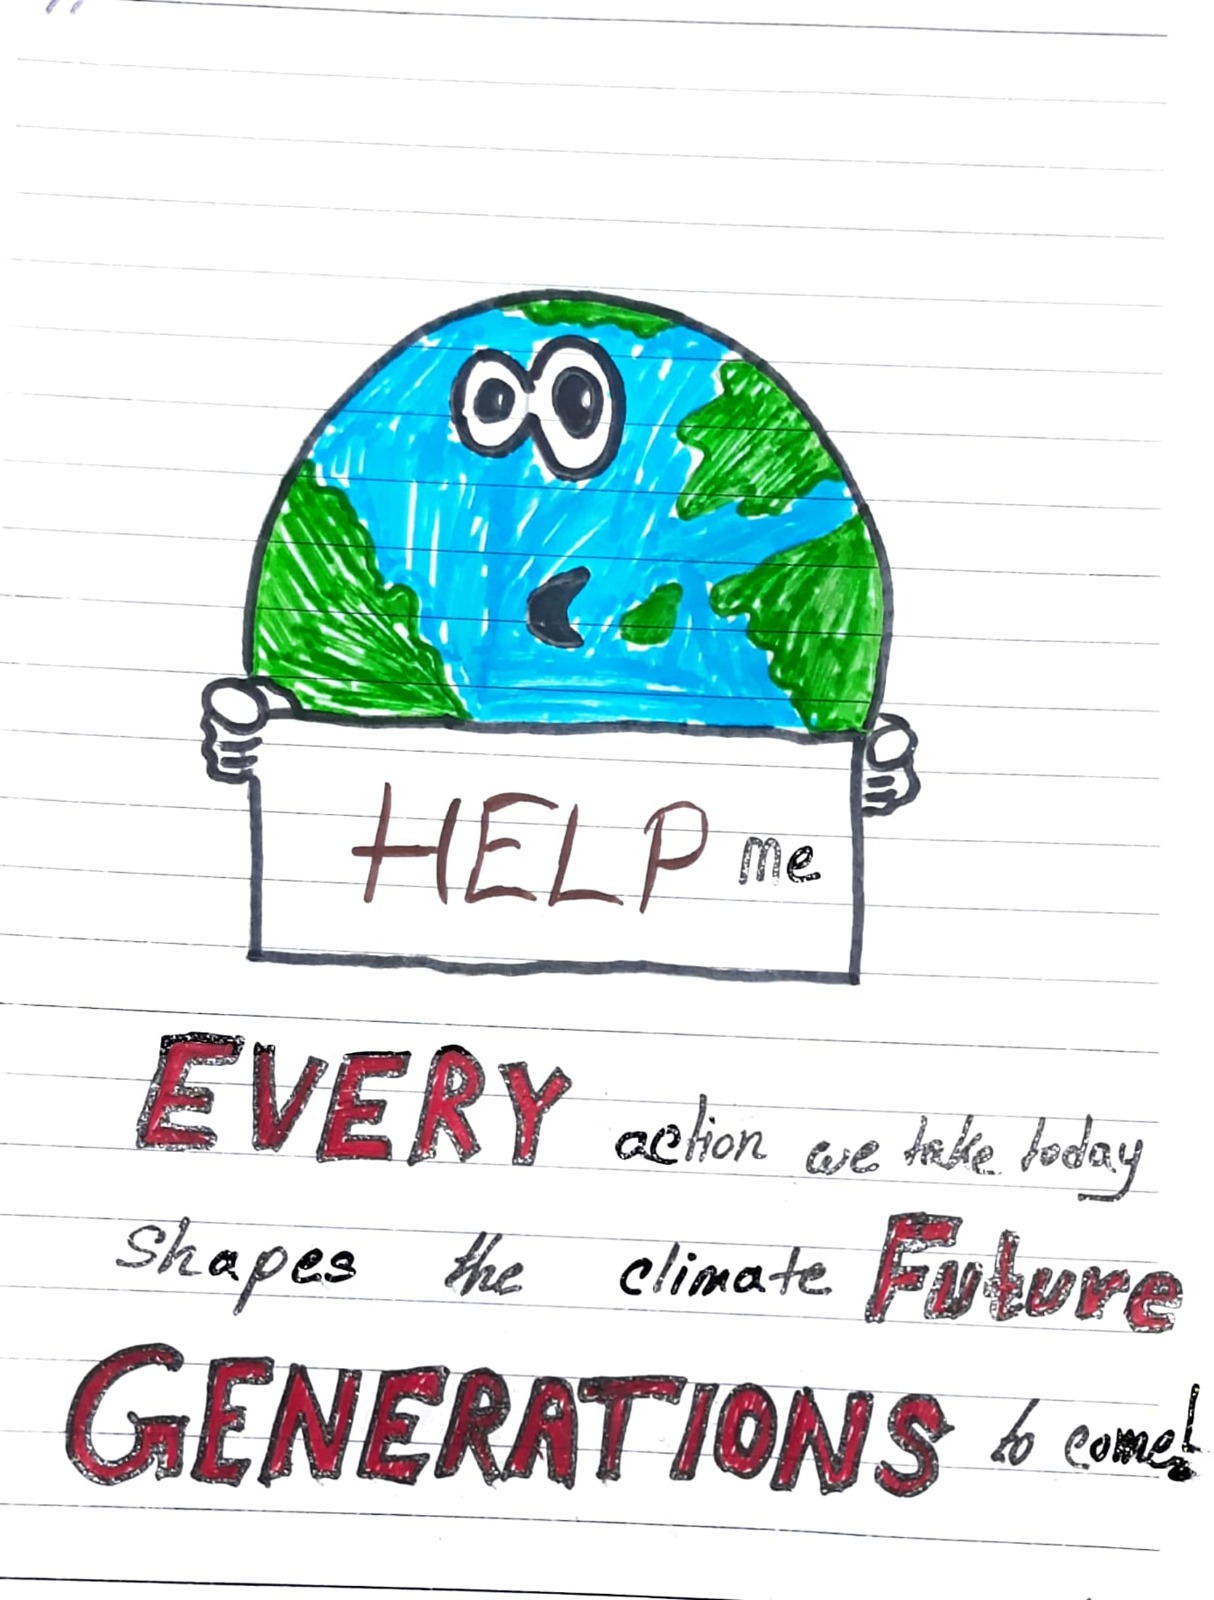 HELP me
EVERY action we take today
Shapes the climate Future
GENERATIONS to come!